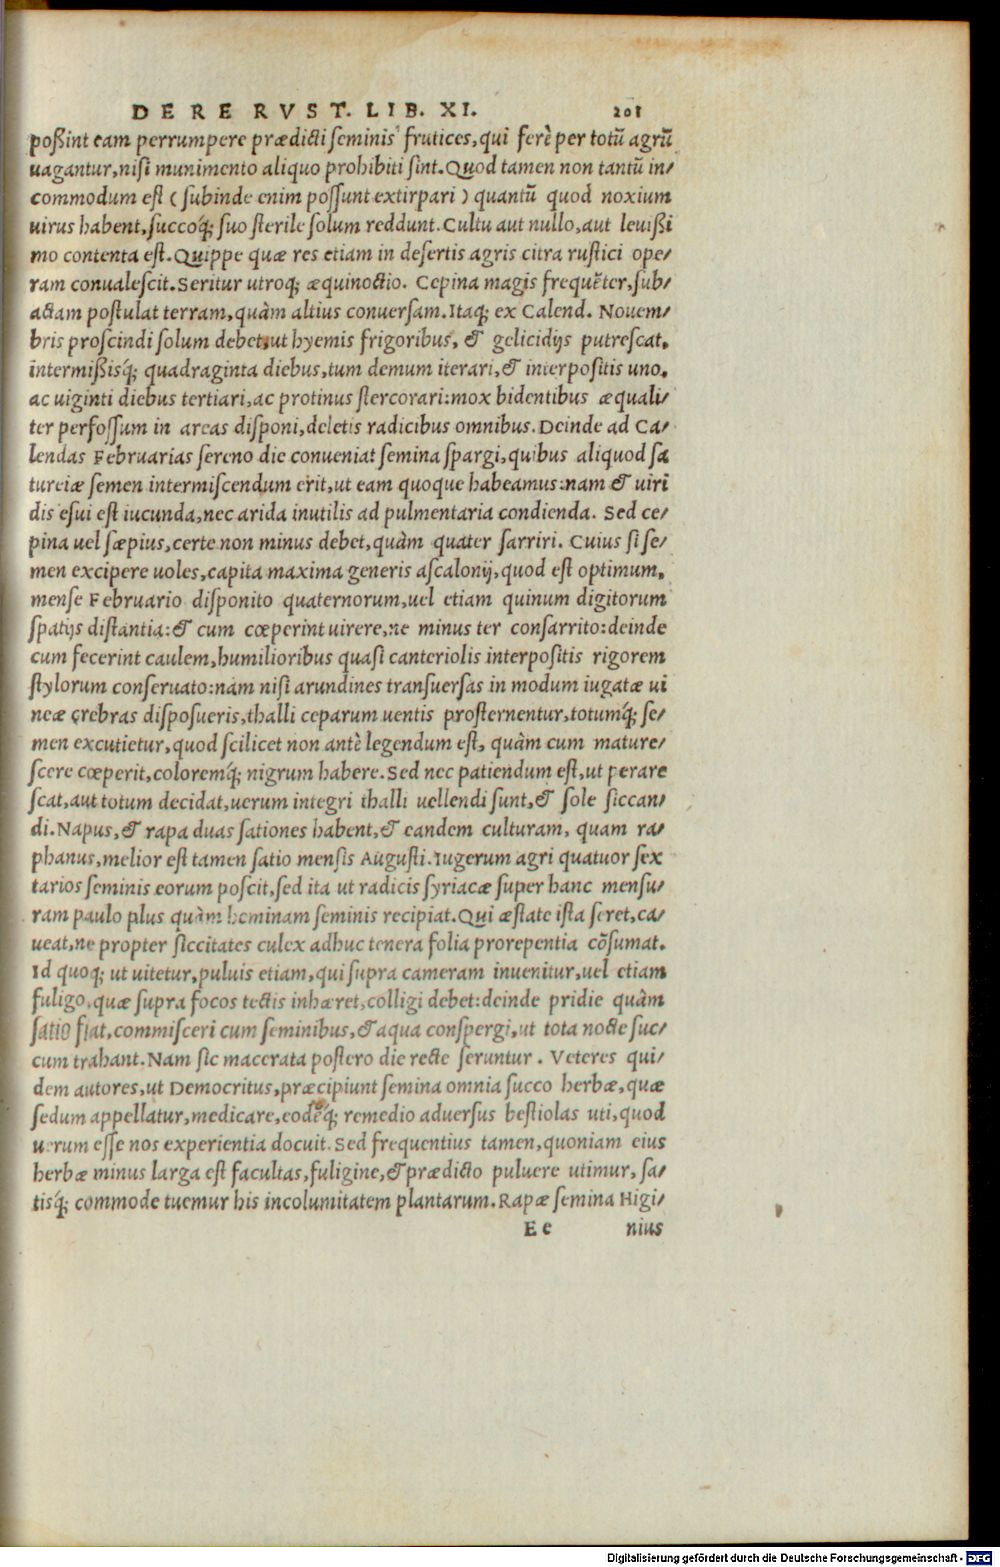 DE RE RVST. LIB. XI. 201
poßint eam perrumpere prædicti seminis frutices, qui ferè per totũ agrũ
uagantur, nisi munimento aliquo prohibiti sint. Quod tamen non tantũ in/
commodum est (subinde enim possunt extirpari) quantũ quod noxium
uirus habent, succoq́; suo sterile solum reddunt. Cultu aut nullo, aut leuißi
mo contenta est. Quippe quæ res etiam in desertis agris citra rustici ope/
ram conualescit. Seritur utroq; æquinoctio. Cepina magis frequẽter, sub/
actam postulat terram, quàm altius conuersam. Itaq; ex Calend. Nouem/
bris proscindi solum debet, ut hyemis frigoribus, & gelicidijs putrescat,
intermißisq́; quadraginta diebus, tum demum iterari, & interpositis uno,
ac uiginti diebus tertiari, ac protinus stercorari: mox bidentibus æquali/
ter perfossum in areas disponi, deletis radicibus omnibus. Deinde ad Ca/
lendas Februarias sereno die conueniat semina spargi, quibus aliquod sa
tureiæ semen intermiscendum erit, ut eam quoque habeamus: nam & uiri
dis esui est iucunda, nec arida inutilis ad pulmentaria condienda. Sed ce/
pina uel sæpius, certe non minus debet, quàm quater sarriri. Cuius si se/
men excipere uoles, capita maxima generis ascalonij, quod est optimum,
mense Februario disponito quaternorum, uel etiam quinum digitorum
spatijs distantia: & cum cœperint uirere, ne minus ter consarrito: deinde
cum fecerint caulem, humilioribus quasi canteriolis interpositis rigorem
stylorum conseruato: nam nisi arundines transuersas in modum iugatæ ui
neæ crebras disposueris, thalli ceparum uentis prosternentur, totumq́; se/
men excutietur, quod scilicet non antè legendum est, quàm cum mature/
scere cœperit, coloremq́; nigrum habere. Sed nec patiendum est, ut perare
scat, aut totum decidat, uerum integri thalli uellendi sunt, & sole siccan/
di. Napus, & rapa duas sationes habent, & eandem culturam, quam ra/
phanus, melior est tamen satio mensis Augusti. Iugerum agri quatuor sex
tarios seminis eorum poscit, sed ita ut radicis syriacæ super hanc mensu/
ram paulo plus quàm heminam seminis recipiat. Qui æstate ista seret, ca/
ueat, ne propter siccitates culex adhuc tenera folia prorepentia cõsumat.
Id quoq; ut uitetur, puluis etiam, qui supra cameram inuenitur, uel etiam
fuligo, quæ supra focos tectis inhæret, colligi debet: deinde pridie quàm
satio fiat, commisceri cum seminibus, & aqua conspergi, ut tota nocte suc/
cum trahant. Nam sic macerata postero die recte seruntur. Veteres qui/
dem autores, ut Democritus, præcipiunt semina omnia succo herbæ, quæ
sedum appellatur, medicare, eodẽq́; remedio aduersus bestiolas uti, quod
uerum esse nos experientia docuit. Sed frequentius tamen, quoniam eius
herbæ minus larga est facultas, fuligine, & prædicto puluere utimur, sa/
tisq́; commode tuemur his incolumitatem plantarum. Rapæ semina Higi/
Ee nius
Digitalisierung gefördert durch die Deutsche Forschungsgemeinschaft - DFG